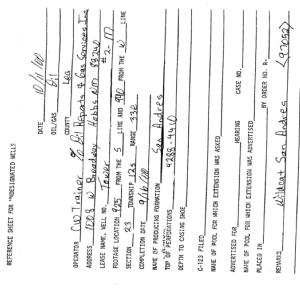 REFERENCE SHEET FOR UNDESIGNATED WELLS
DATE 10/11/00
OIL/GAS Oil
COUNTY Lea
OPERATOR CW Trainer % Oil Reports & Gas Services Inc
ADDRESS 1008 W Broadway Hobbs NM 88240
LEASE NAME, WELL NO. #2-17
FOOTAGE LOCATION 925 FROM THE S LINE AND 990 FROM THE W LINE
SECTION 23 TOWNSHIP 12S RANGE 33E
COMPLETION DATE 9/16/00
NAME OF PRODUCING FORMATION San Andres
TOP OF PERFORATIONS 4288-4410
DEPTH TO CASING SHOE
C-123 FILED
NAME OF POOL FOR WHICH EXTENSION WAS ASKED
ADVERTISED FOR HEARING CASE NO.
NAME OF POOL FOR WHICH EXTENSION WAS ADVERTISED
PLACED IN BY ORDER NO. R-
REMARKS Wildcat San Andres <97052>